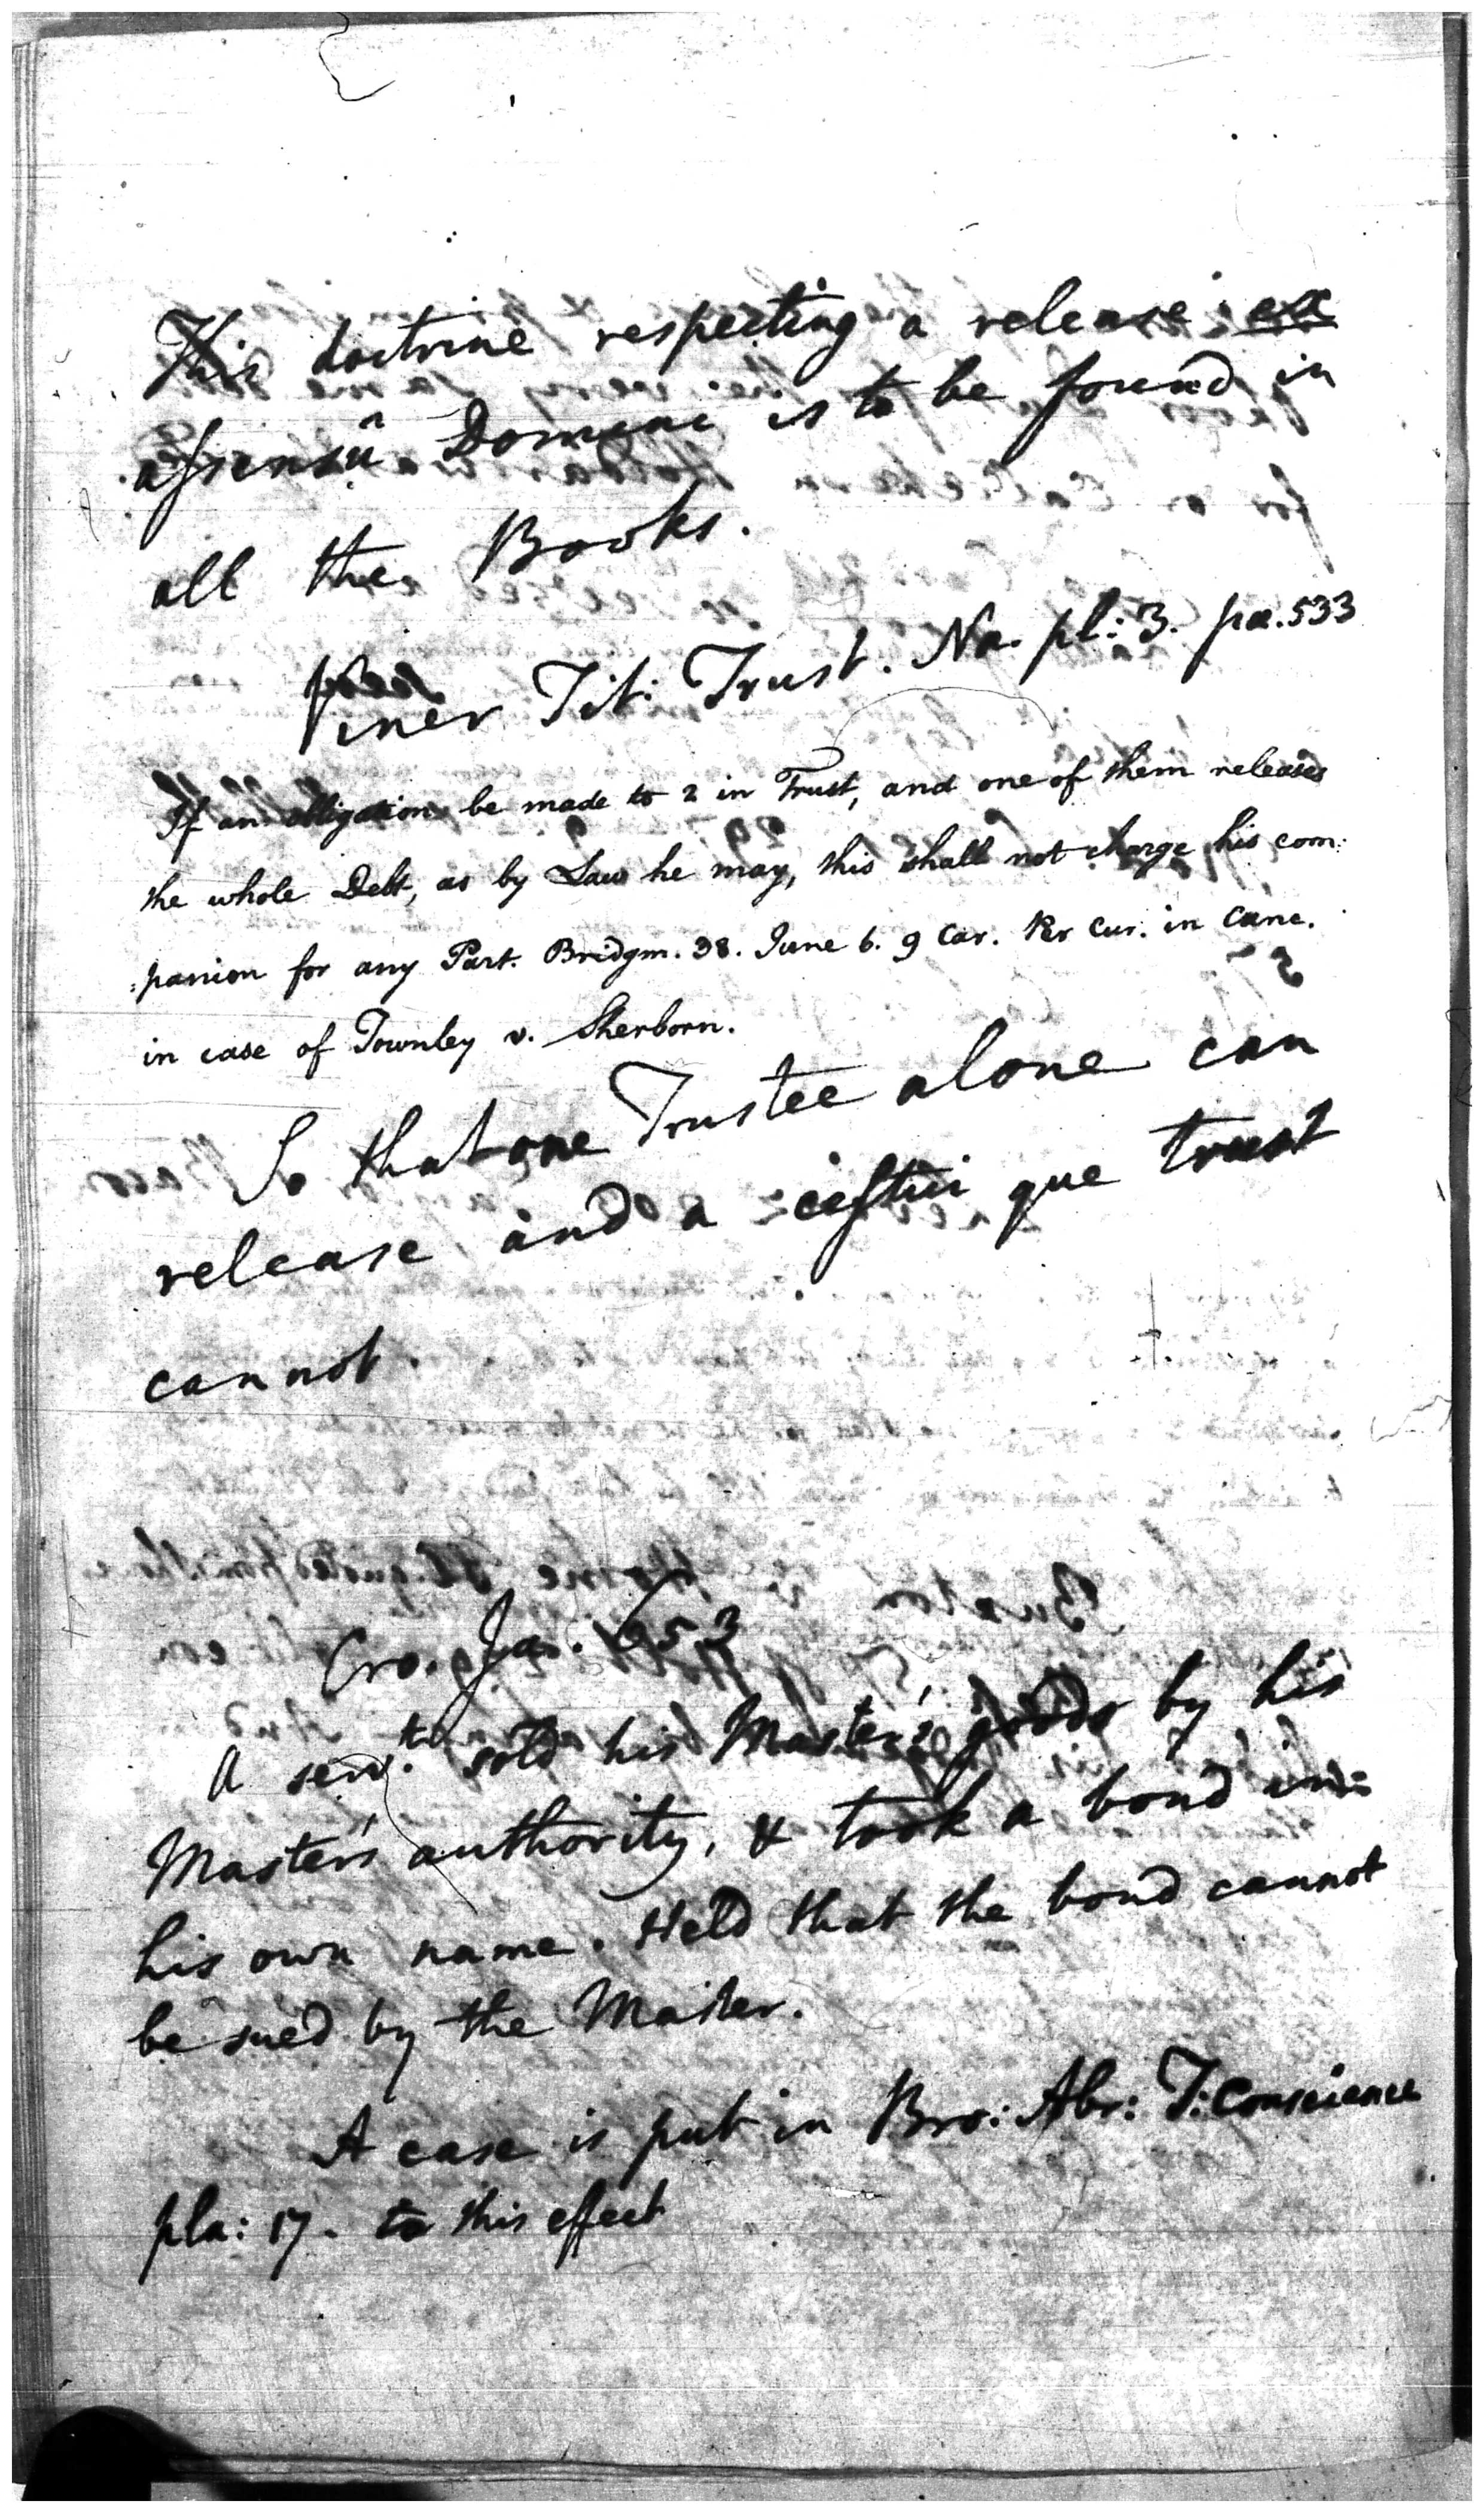 This doctrine respecting a release ex
assensû Domini is to be found in
all the Books.
Viner Tit: Trust. Na. pl: 3. pa. 533
If an obligation be made to 2 in Trust, and one of them releases
the whole Debt, as by Law he may, this shall not charge his com:
:panion for any Part. Bridgm. 38. June 6. 9 Car. Per Cur. in Canc.
in case of Townley v. Sherborn.
So that one Trustee alone can
release and a cestui que trust
cannot.
Cro. Jas. 653
A serv.t sold his Master's goods by his
Master's authority, & took a bond in
his own name. Held that the bond cannot
be sued by the Master.
A case is put in Bro: Abr: T: Conscience
pla: 17. to this effect